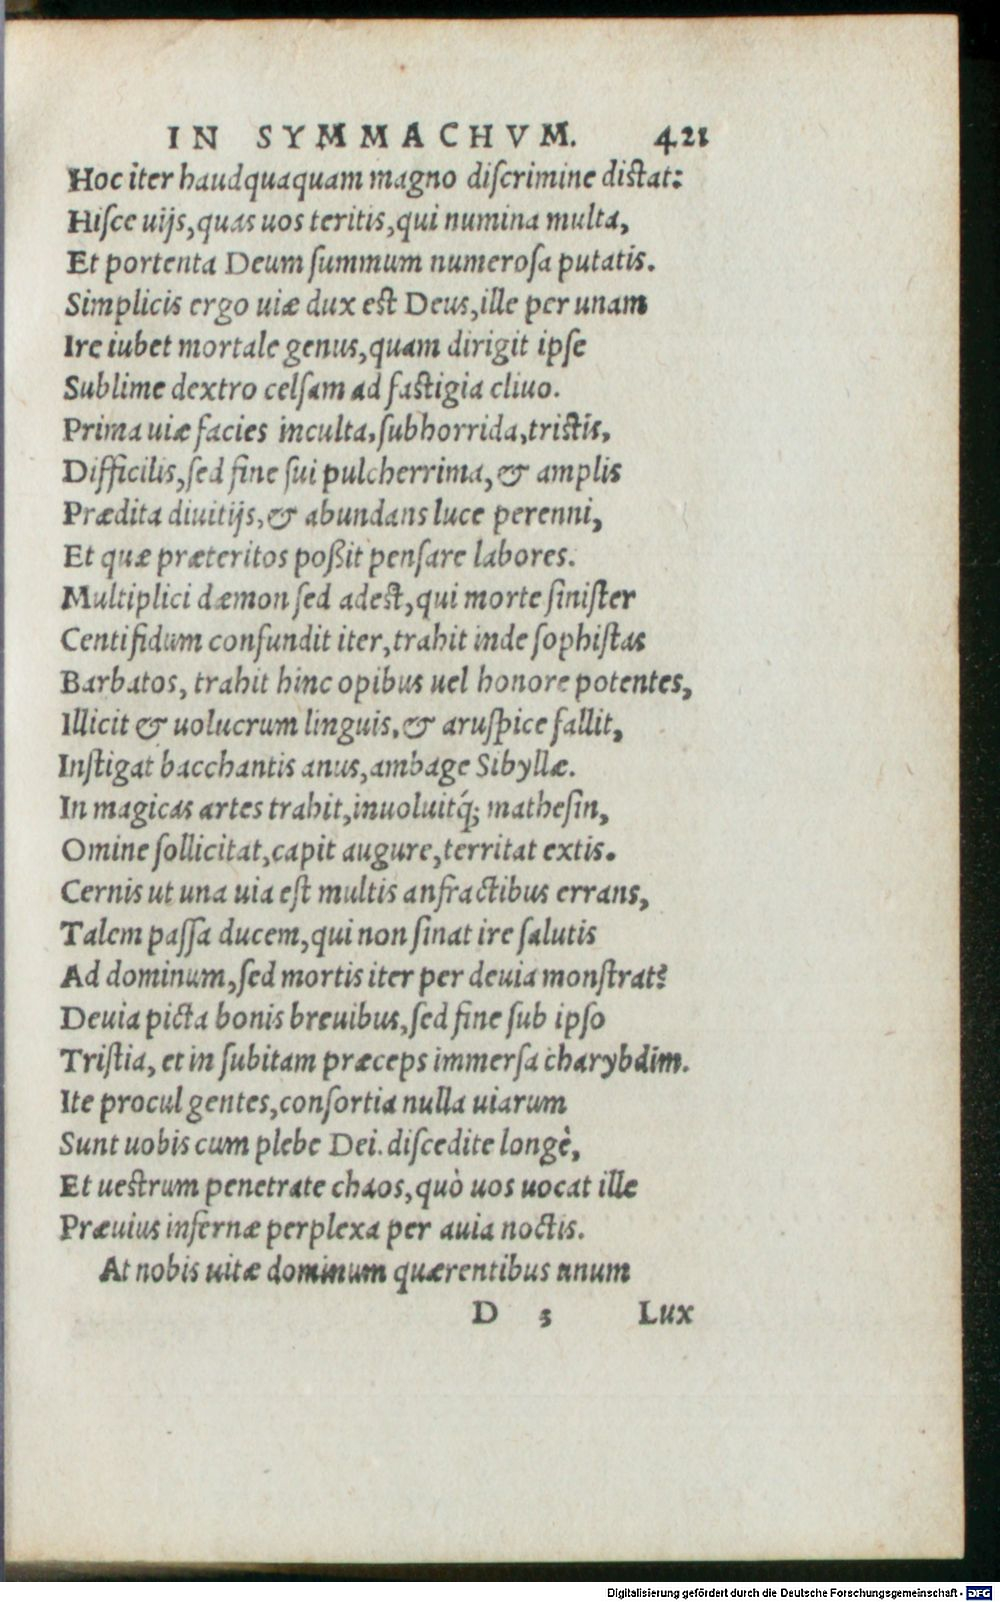 IN SYMMACHVM. 421
Hoc iter haudquaquam magno discrimine distat:
Hisce uijs, quas uos teritis, qui numina multa,
Et portenta Deum summum numerosa putatis.
Simplicis ergo uiæ dux est Deus, ille per unam
Ire iubet mortale genus, quam dirigit ipse
Sublime dextro celsam ad fastigia cliuo.
Prima uiæ facies inculta, subhorrida, tristis,
Difficilis, sed fine sui pulcherrima, & amplis
Prædita diuitijs, & abundans luce perenni,
Et quæ præteritos poßit pensare labores.
Multiplici dæmon sed adest, qui morte sinister
Centifidum confundit iter, trahit inde sophistas
Barbatos, trahit hinc opibus uel honore potentes,
Illicit & uolucrum linguis, & aruspice fallit,
Instigat bacchantis anus, ambage Sibyllæ.
In magicas artes trahit, inuoluitq́; mathesin,
Omine sollicitat, capit augure, territat extis.
Cernis ut una uia est multis anfractibus errans,
Talem passa ducem, qui non sinat ire salutis
Ad dominum, sed mortis iter per deuia monstrat?
Deuia picta bonis breuibus, sed fine sub ipso
Tristia, et in subitam præceps immersa charybdim.
Ite procul gentes, consortia nulla uiarum
Sunt uobis cum plebe Dei. discedite longè,
Et uestrum penetrate chaos, quò uos uocat ille
Præuius infernæ perplexa per auia noctis.
At nobis uitæ dominum quærentibus unum
D 5 Lux
Digitalisierung gefördert durch die Deutsche Forschungsgemeinschaft - DFG